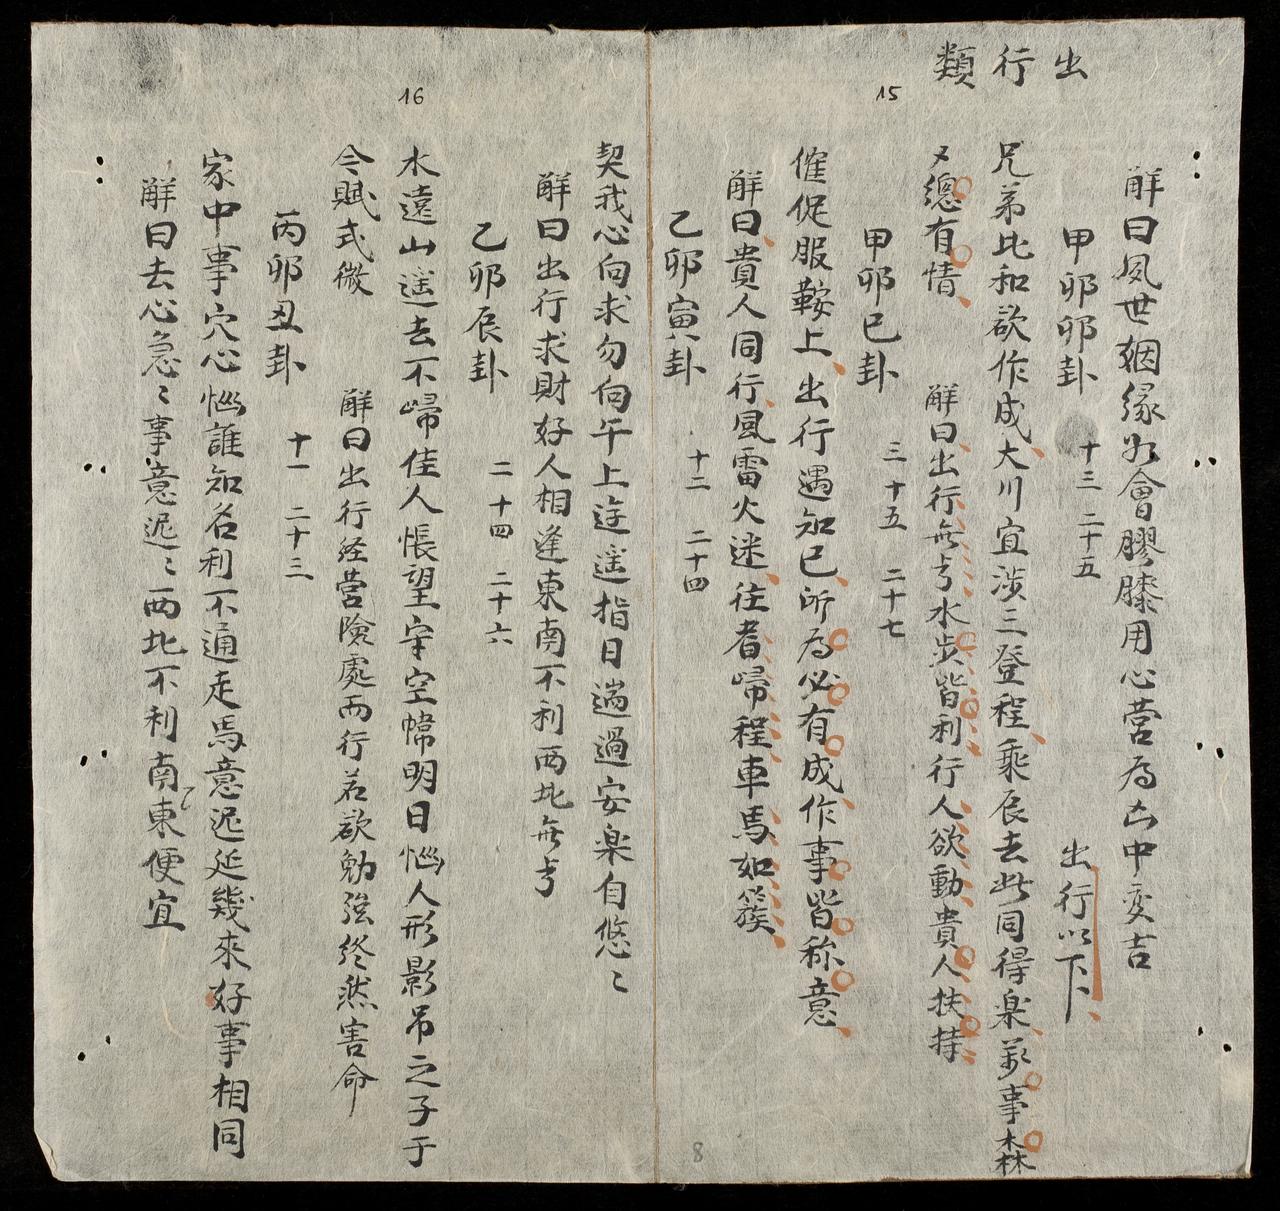 出行類
15
16
解曰夙世姻緣如會膠膝用心營为凶中变吉
甲卯卯卦 十三 二十五 出行以下
兄弟比和欲作成大川宜涉三登程乘辰去此同得楽万事森
〻總有情 解曰出行無亏水步皆利行人欲動貴人扶持
甲卯巳卦 三 十五 二十七
催促服鞍上出行遇知已所为必有成作事皆称意
解曰貴人同行風雷火迷往者帰程車馬如簇
乙卯寅卦 十二 二十四
契我心向求勿向午上迳遥指日耑過安楽自悠〻
解曰出行求財好人相逢東南不利西北無亏
乙卯辰卦 二 十四 二十六
水遠山遥去不帰佳人悵望守空幃明日惱人形影吊之子于
今賦式微 解曰出行经营險處而行若欲勉強终然害命
丙卯丑卦 十一 二十三
家中事冗心惱誰知名利不通走馬意迟延幾來好事相同
解曰去心急〻事意迟〻西北不利南東便宜
8